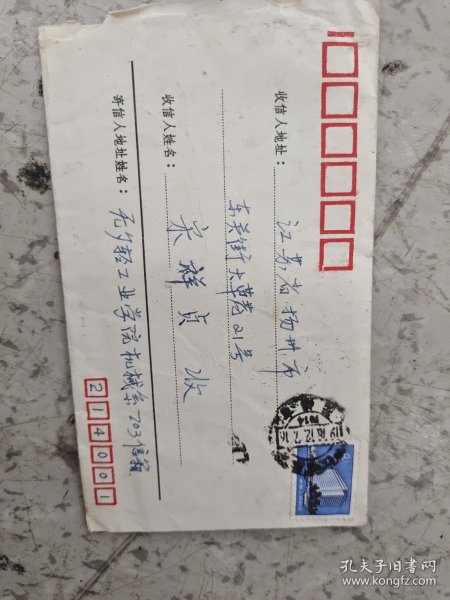 收信人地址：
江苏省扬州市
东关街大草巷21号
收信人姓名：
宋祥贞 收
寄信人地址姓名：
无夕轻工业学院机械系703信箱
214001
孔夫子旧书网
www.kongfz.com